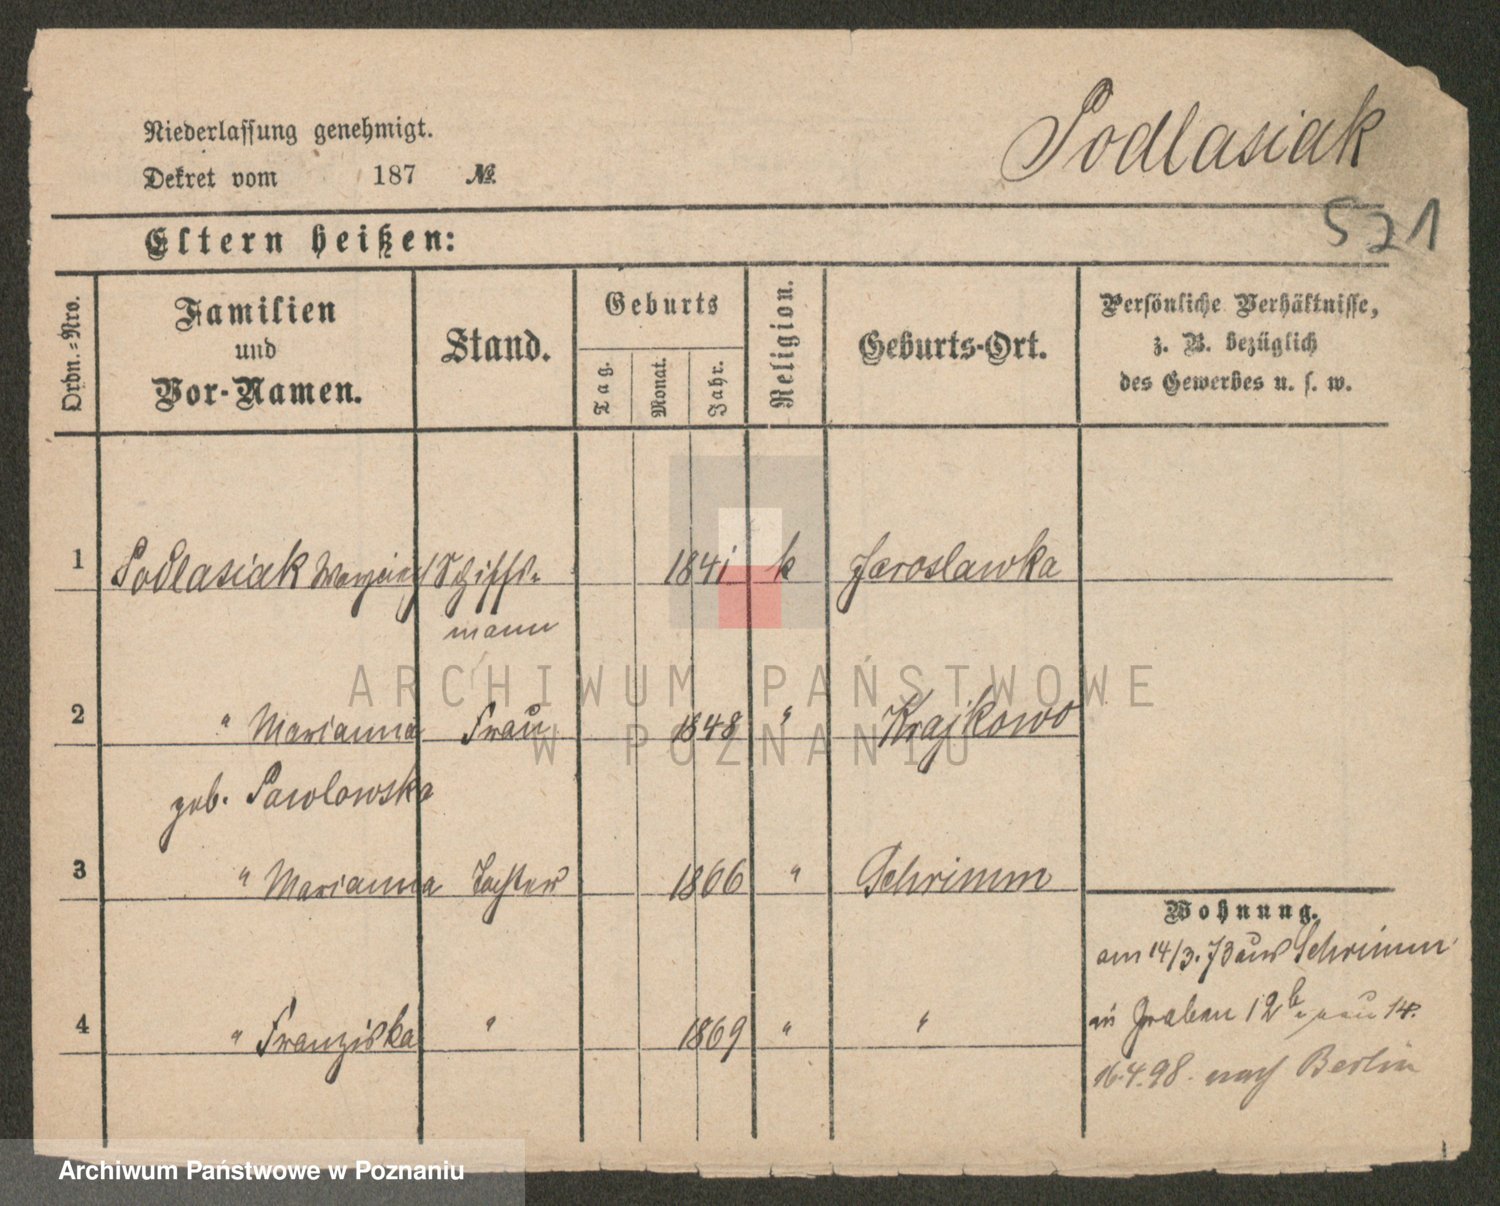 Podlasiak
Niederlassung genehmigt.
Dekret vom 187 №.
521
Eltern heißen:
Ordn.-Nro.
Familien
und
Vor-Namen.
Stand.
Geburts
Tag.
Monat.
Jahr.
Religion.
Geburts-Ort.
Persönliche Verhältnisse,
z. B. bezüglich
des Gewerbes u. s. w.
1 Podlasiak Schiff- 1841 k Jaroslawka
mann
ARCHIWUM PAŃSTWOWE
W POZNANIU
2 " Marianna Frau 1848 " Krajkowo
geb. Pawlowska
3 " Marianna Tochter 1866 " Schrimm
Wohnung.
am 14/3. 73 aus Schrimm
4 " Franziska " 1869 " "
in Graben 12b 14.
16.4.98. nach Berlin
Archiwum Państwowe w Poznaniu